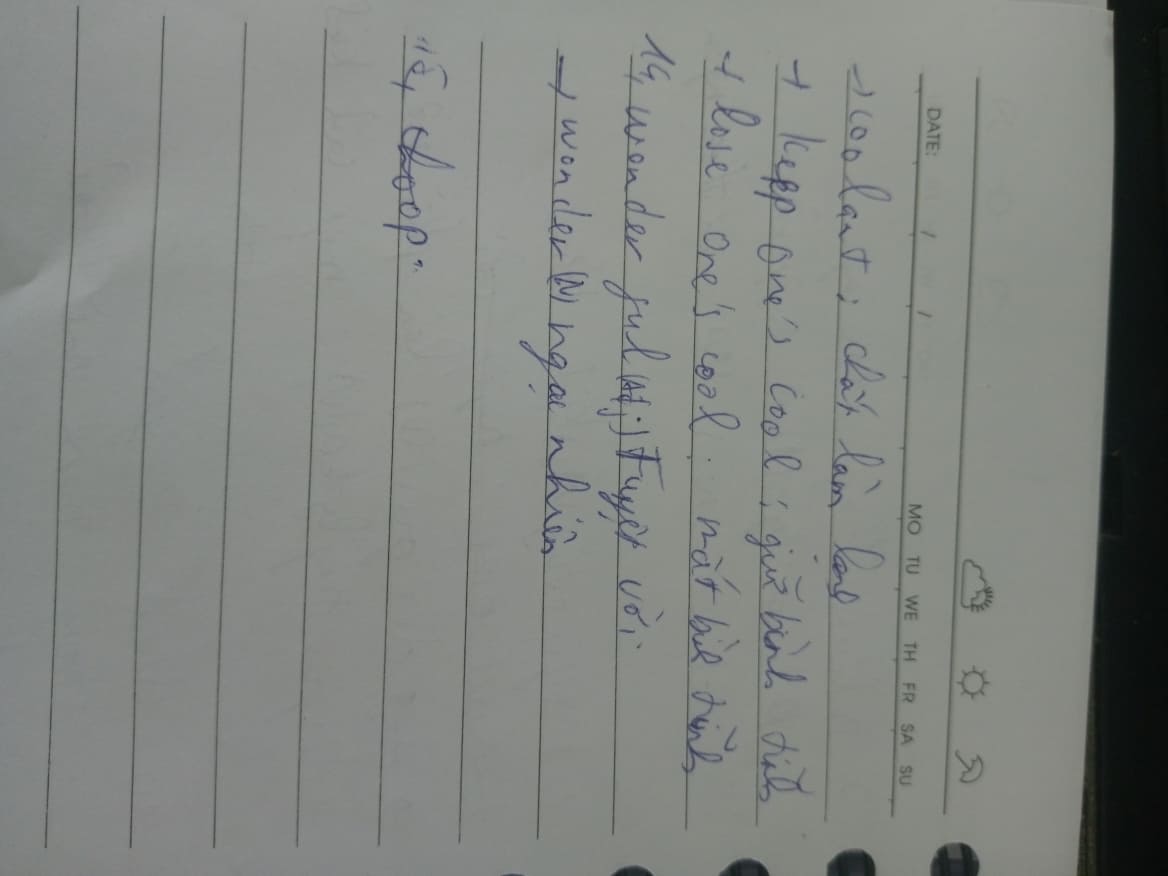 DATE: / / MO TU WE TH FR SA SU
→ coolant : chất làm lạnh
→ kepp one's cool : giữ bình tĩnh
→ lose one's cool : mất bình tĩnh
14, wonderful (Adj) Tuyệt vời
→ wonder (N) ngạc nhiên